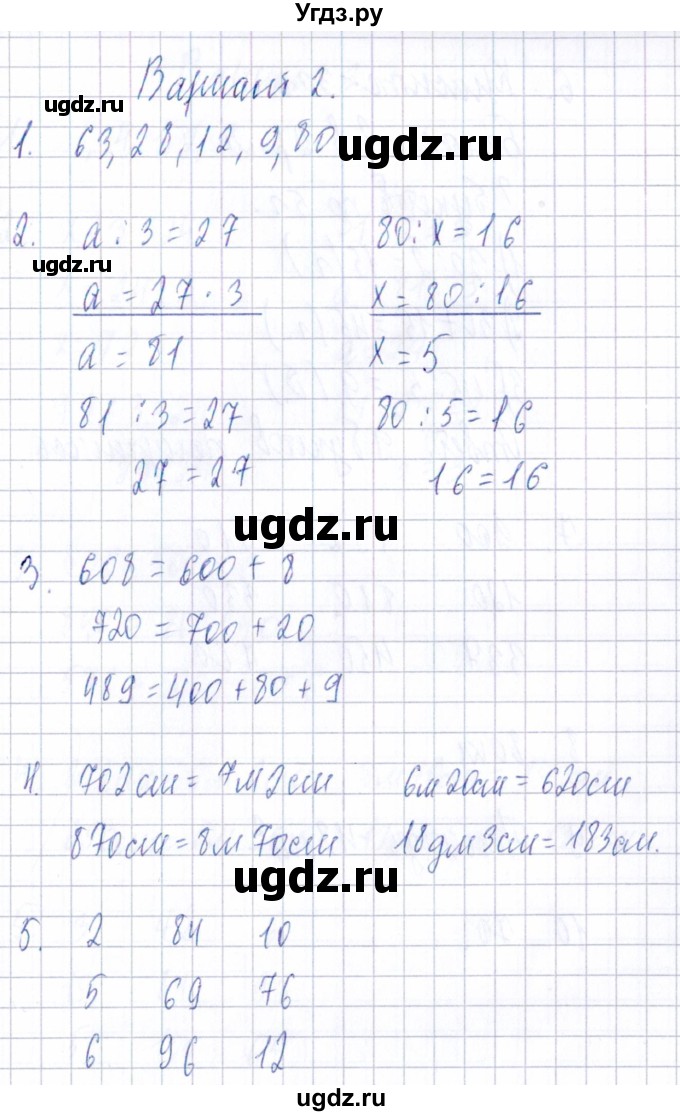 Угдз.ру
Вариант 2.
ugdz.ru
1. 63, 28, 12, 9, 80
ugdz.ru
2. a : 3 = 27 80 : x = 16
ugdz.ru
a = 27 · 3 x = 80 : 16
a = 81 x = 5
81 : 3 = 27 80 : 5 = 16
27 = 27 16 = 16
ugdz.ru
3. 608 = 600 + 8
720 = 700 + 20
489 = 400 + 80 + 9
4. 702 см = 7м 2 см 6м 20см = 620см
870см = 8м 70см 18дм 3см = 183см.
ugdz.ru
5. 2 84 10
5 69 76
6 96 12
ugdz.ru